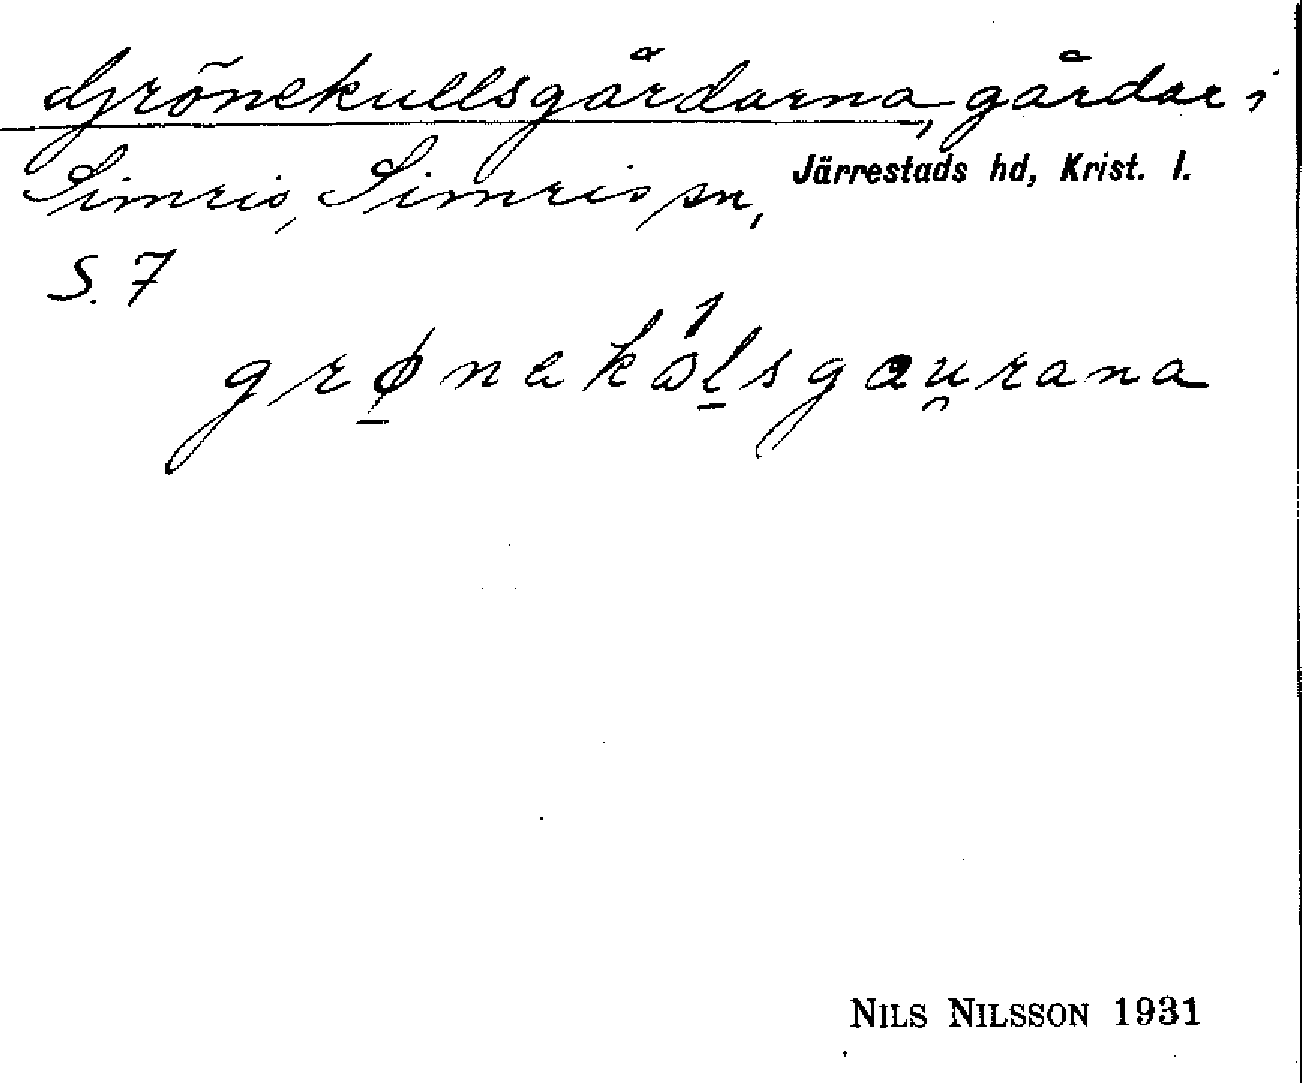 Grönekullsgårdarna, gårdar i
Simris, Simris sn, Järrestads hd, Krist. l.
S. 7
grø̱nekål̠sgau̯rana
NILS NILSSON 1931